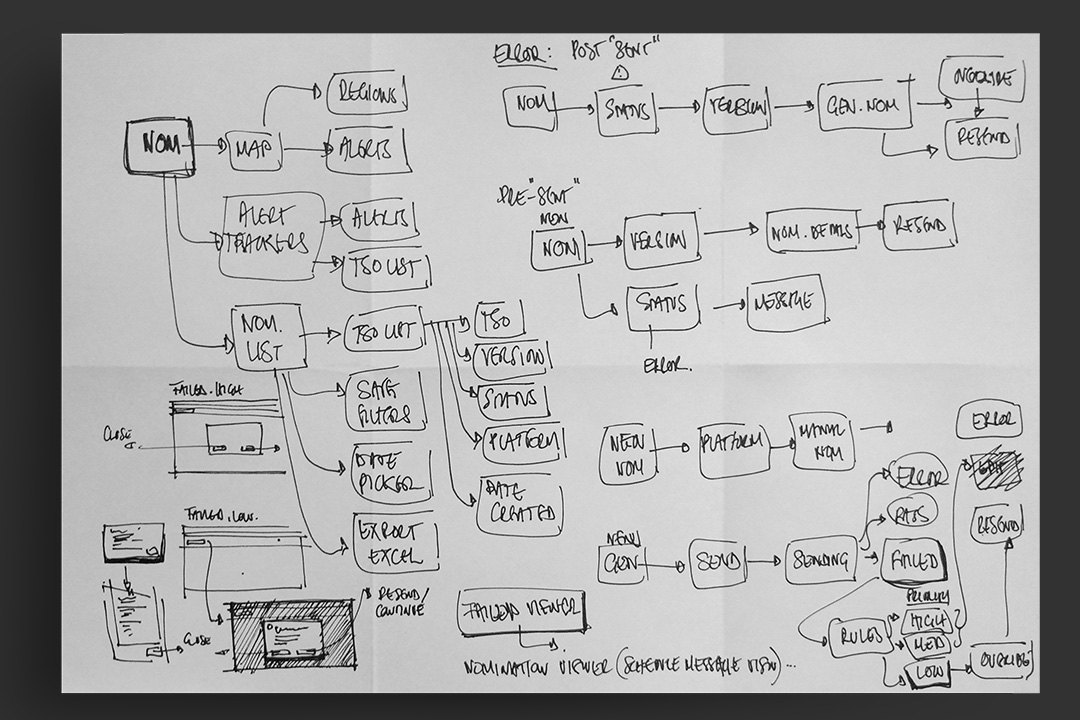 ERROR: POST "SENT"
NOM
MAP
REGIONS
ALERTS
ALERT
TRACKERS
ALERTS
TSO LIST
NOM.
LIST
TSO LIST
TSO
VERSION
STATUS
PLATFORM
DATE
CREATED
SAVE
FILTERS
DATE
PICKER
EXPORT
EXCEL
NOM
STATUS
VERSION
GEN. NOM
OVERRIDE
RESEND
PRE-"SENT"
NOM
NOM
VERSION
NOM. DETAILS
RESEND
STATUS
MESSAGE
ERROR.
NEW
NOM
PLATFORM
MANUAL
NOM
NEW
GEN
SEND
SENDING
ERROR
FAILED
RULES
PRIORITY
HIGH
MED
LOW
OVERRIDE
RESEND
EDIT
ERROR
FAILED. HIGH
CLOSE
FAILED. LOW.
RESEND/
CONTINUE
CLOSE
FAILED VIEWER
NOMINATION VIEWER (SCHEDULE MESSAGE VIEW)...